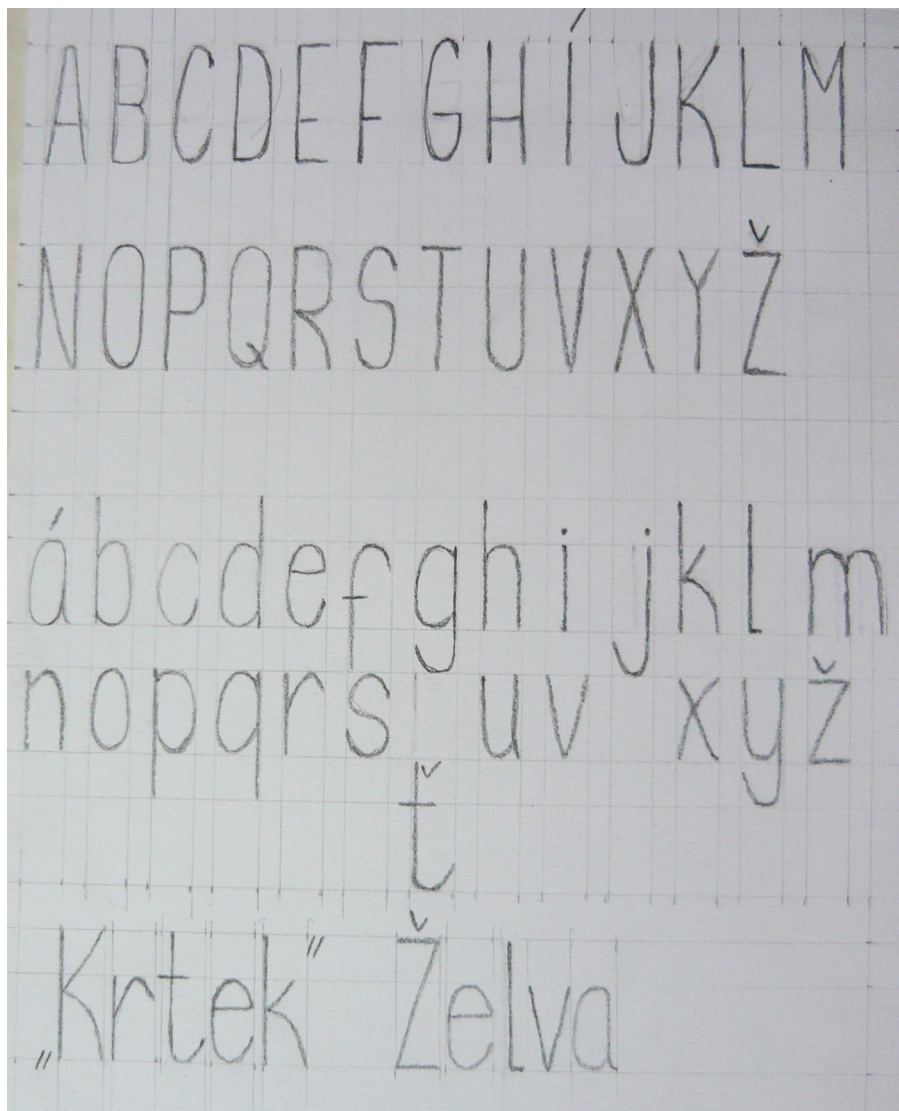 A B C D E F G H Í J K L M
N O P Q R S T U V X Y Ž
á b c d e f g h i j k l m
n o p q r s u v x y ž
ť
„Krtek" Želva